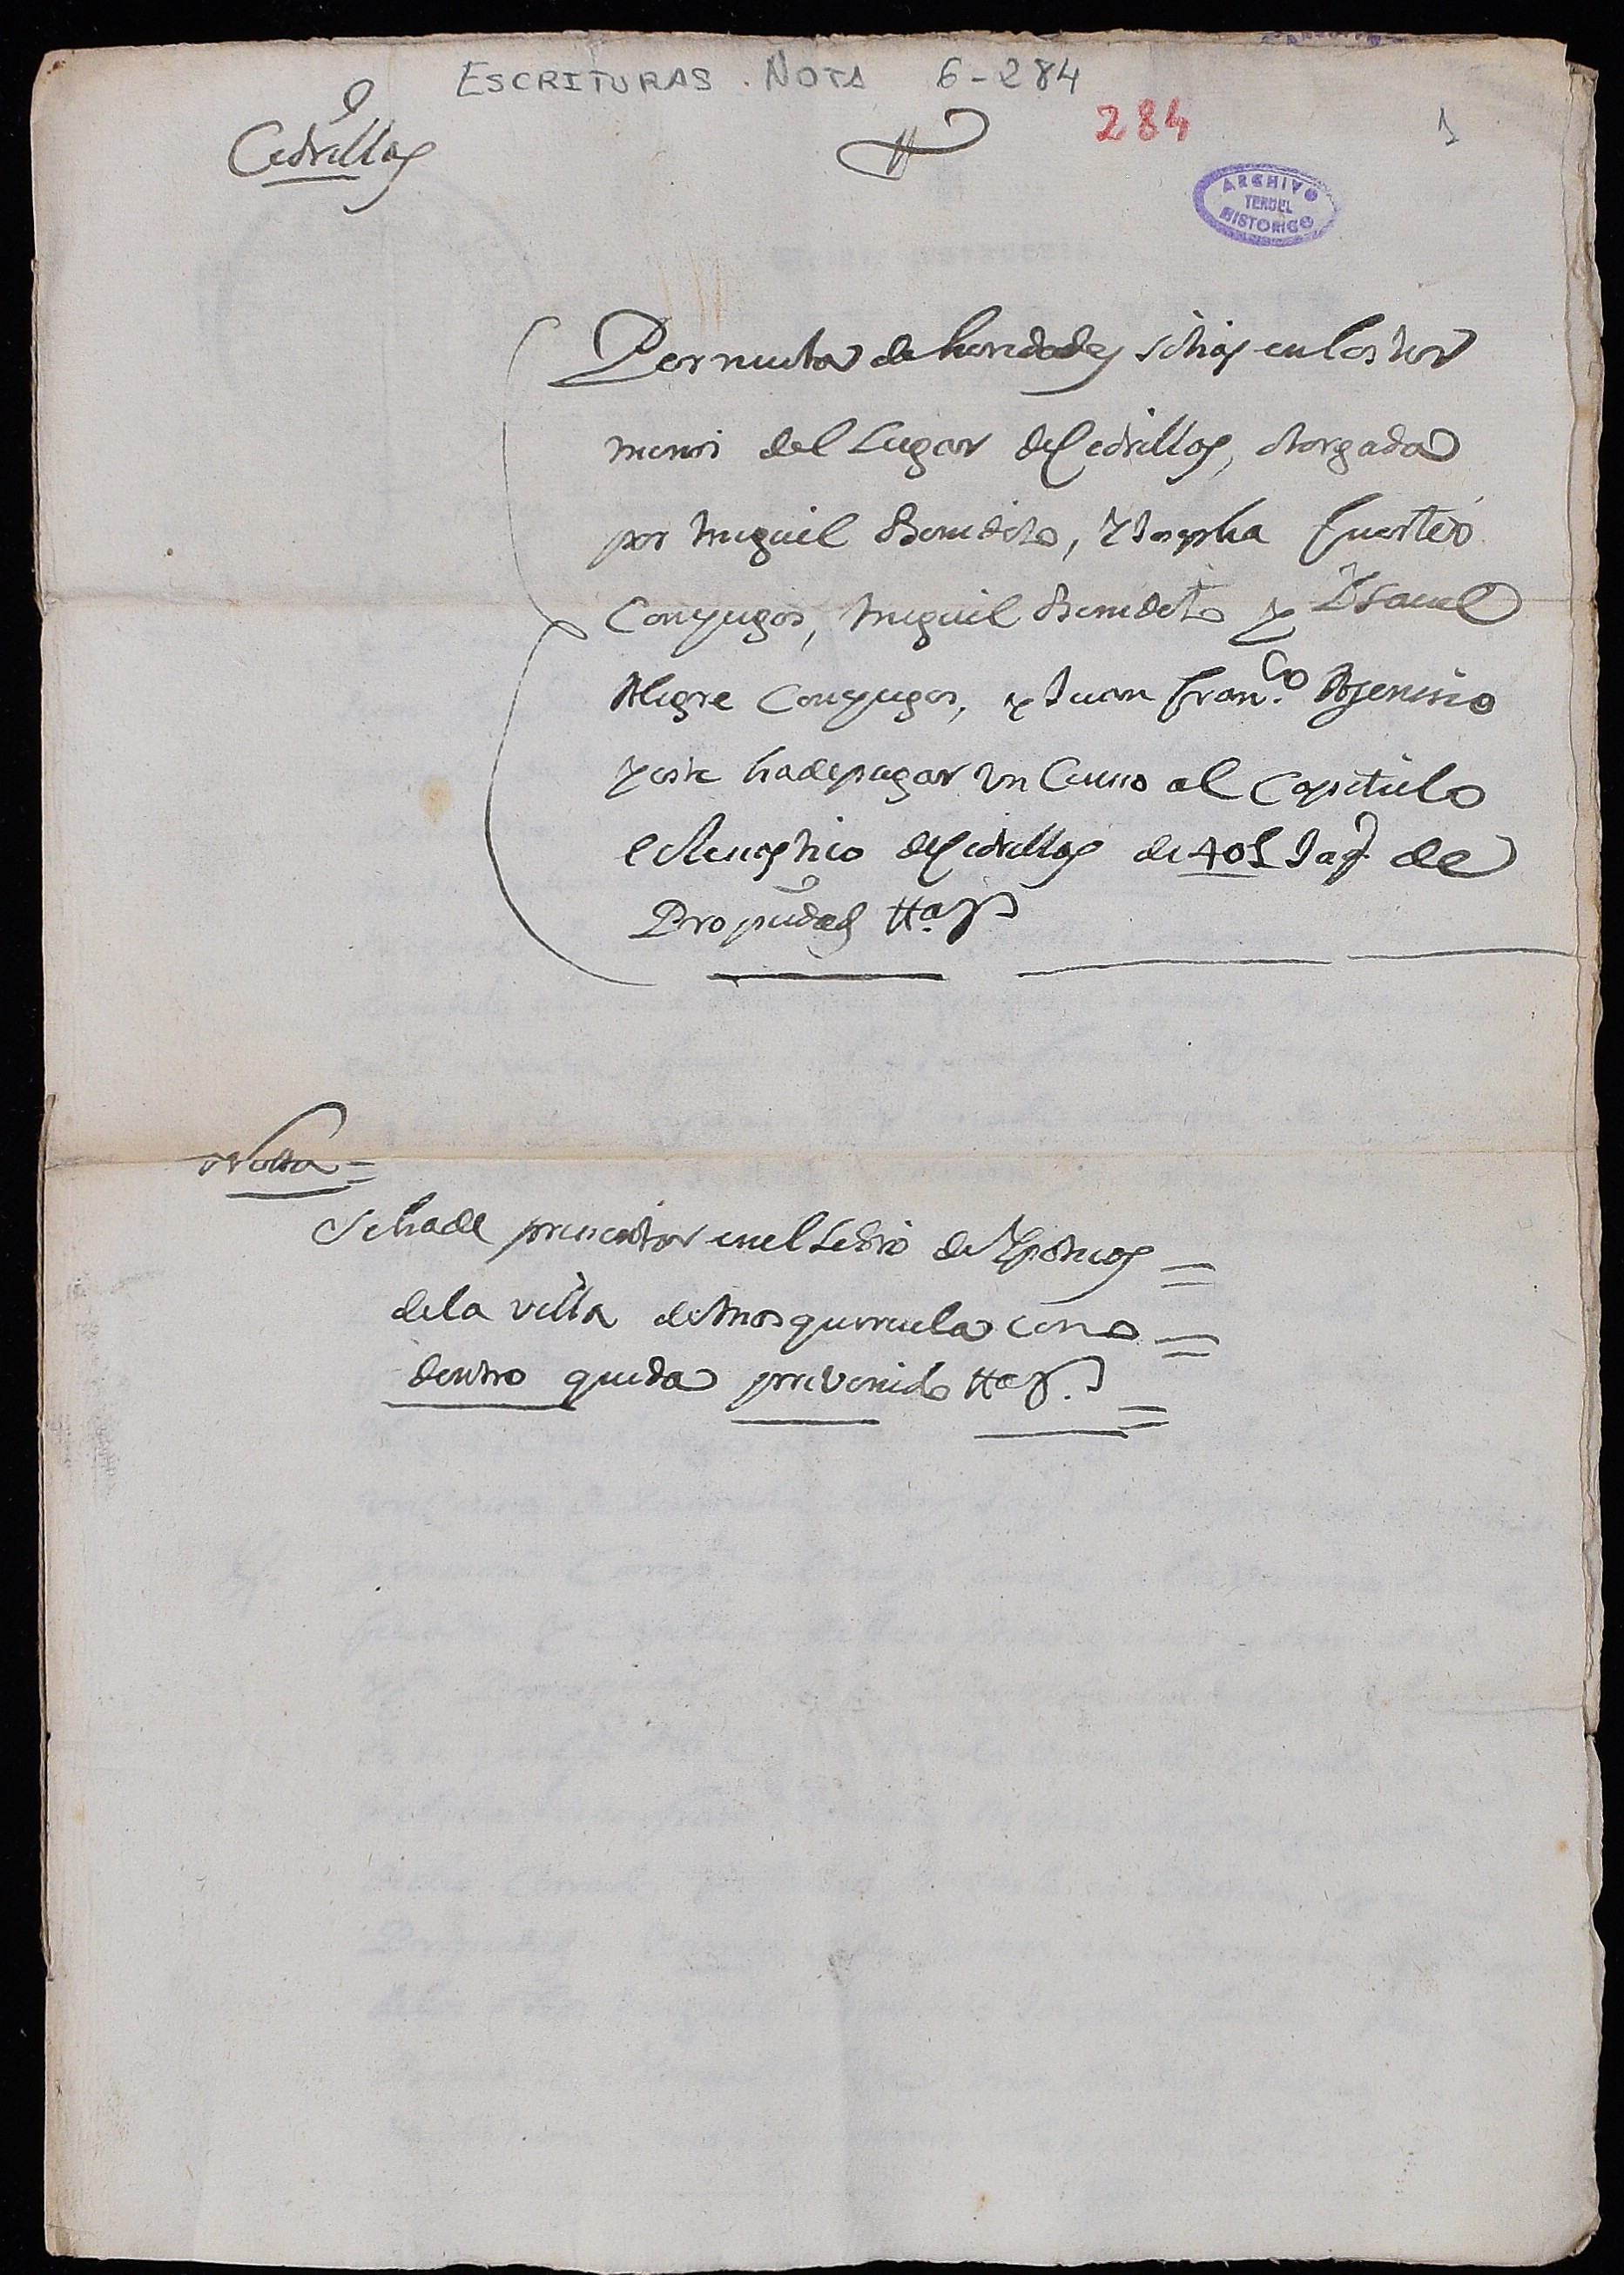 ESCRITURAS. NOTA 6-284
284
1
Cedrillas
ARCHIVO
TERUEL
HISTORICO
Permuta de heredades sitias en los ter
minos del Lugar de Cedrillas, otorgada
por Miguel Benedito, y Josepha Fuertes
Conyuges, Miguel Benedito y Ysavel
Alegre Conyuges, y Juan Fran.co
y este ha de pagar un Censo al Capitulo
eclesiastico de Cedrillas de 40 L Jaq.s de
Propiedad
Notta =
Se ha de presentar en el Libro de Ypotecas =
de la villa de Mosqueruela como =
dentro queda prevenido =